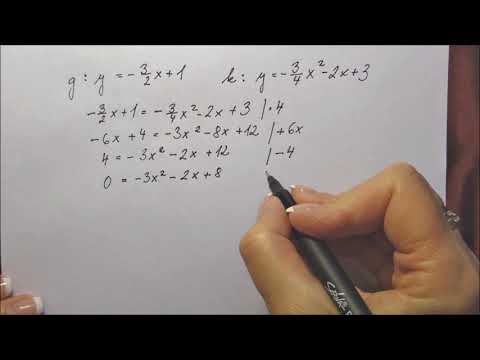 g: y = -3/2 x + 1 k: y = -3/4 x² - 2x + 3
-3/2 x + 1 = -3/4 x² - 2x + 3 | · 4
-6x + 4 = -3x² - 8x + 12 | + 6x
4 = -3x² - 2x + 12 | - 4
0 = -3x² - 2x + 8 |